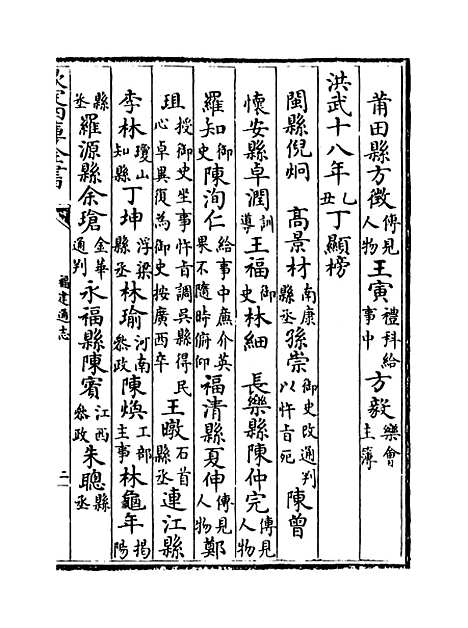 莆田縣方徵傳見人物王寅禮科給事中方毅樂會主簿
洪武十八年乙丑丁顯榜
閩縣倪炯 高景材南康縣丞孫崇御史改通判以忤旨死陳曾
懷安縣卓潤訓導王福御史林細 長樂縣陳仲完傳見人物
羅知御史陳洵仁給事中廉介英果不隨時俯仰福清縣夏伸傳見人物鄭
珇授御史坐事忤旨調吳縣得民心卓異復為御史按廣西卒王暾石首縣丞連江縣
李林瓊山知縣丁坤浮梁縣丞林瑜河南叅政陳煥工部主事林龜年揭陽
縣丞羅源縣余瑲金華通判永福縣陳賓江西叅政朱聰縣丞
欽定四庫全書
福建通志